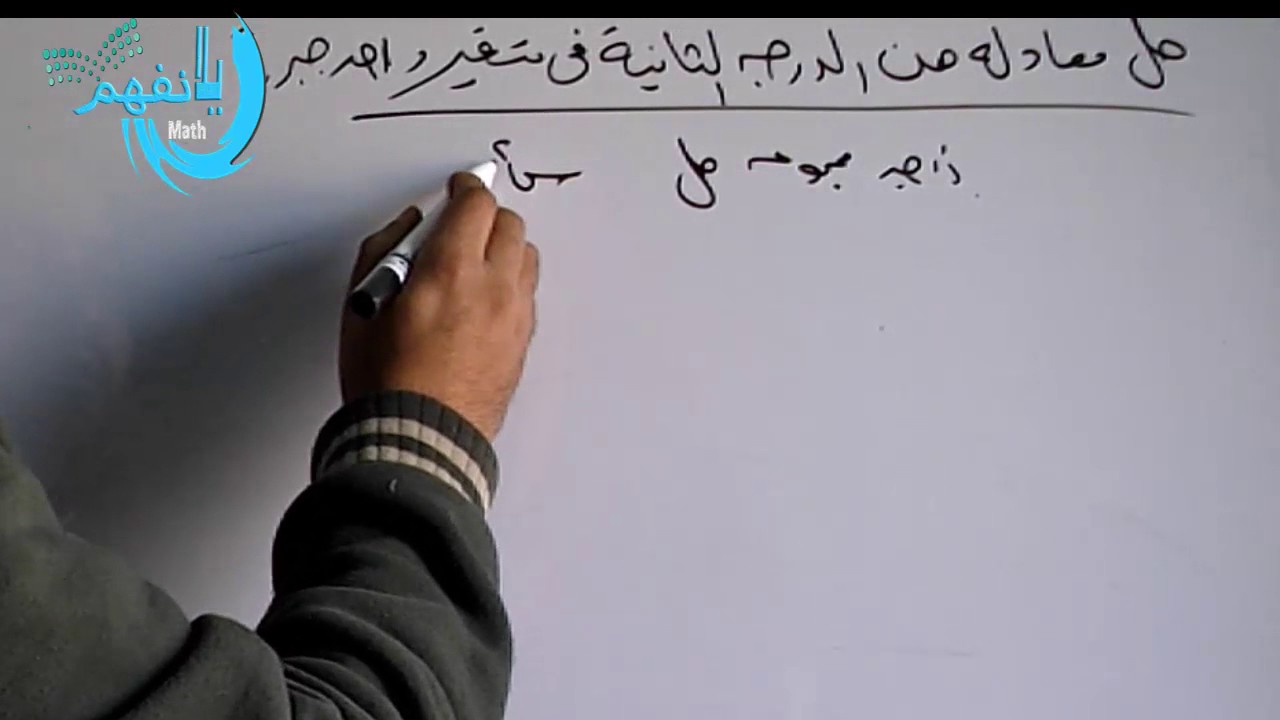 حل معادله من الدرجه الثانية فى متغير واحد جبر
مجموعه حل س²
يلا نفهم
Math